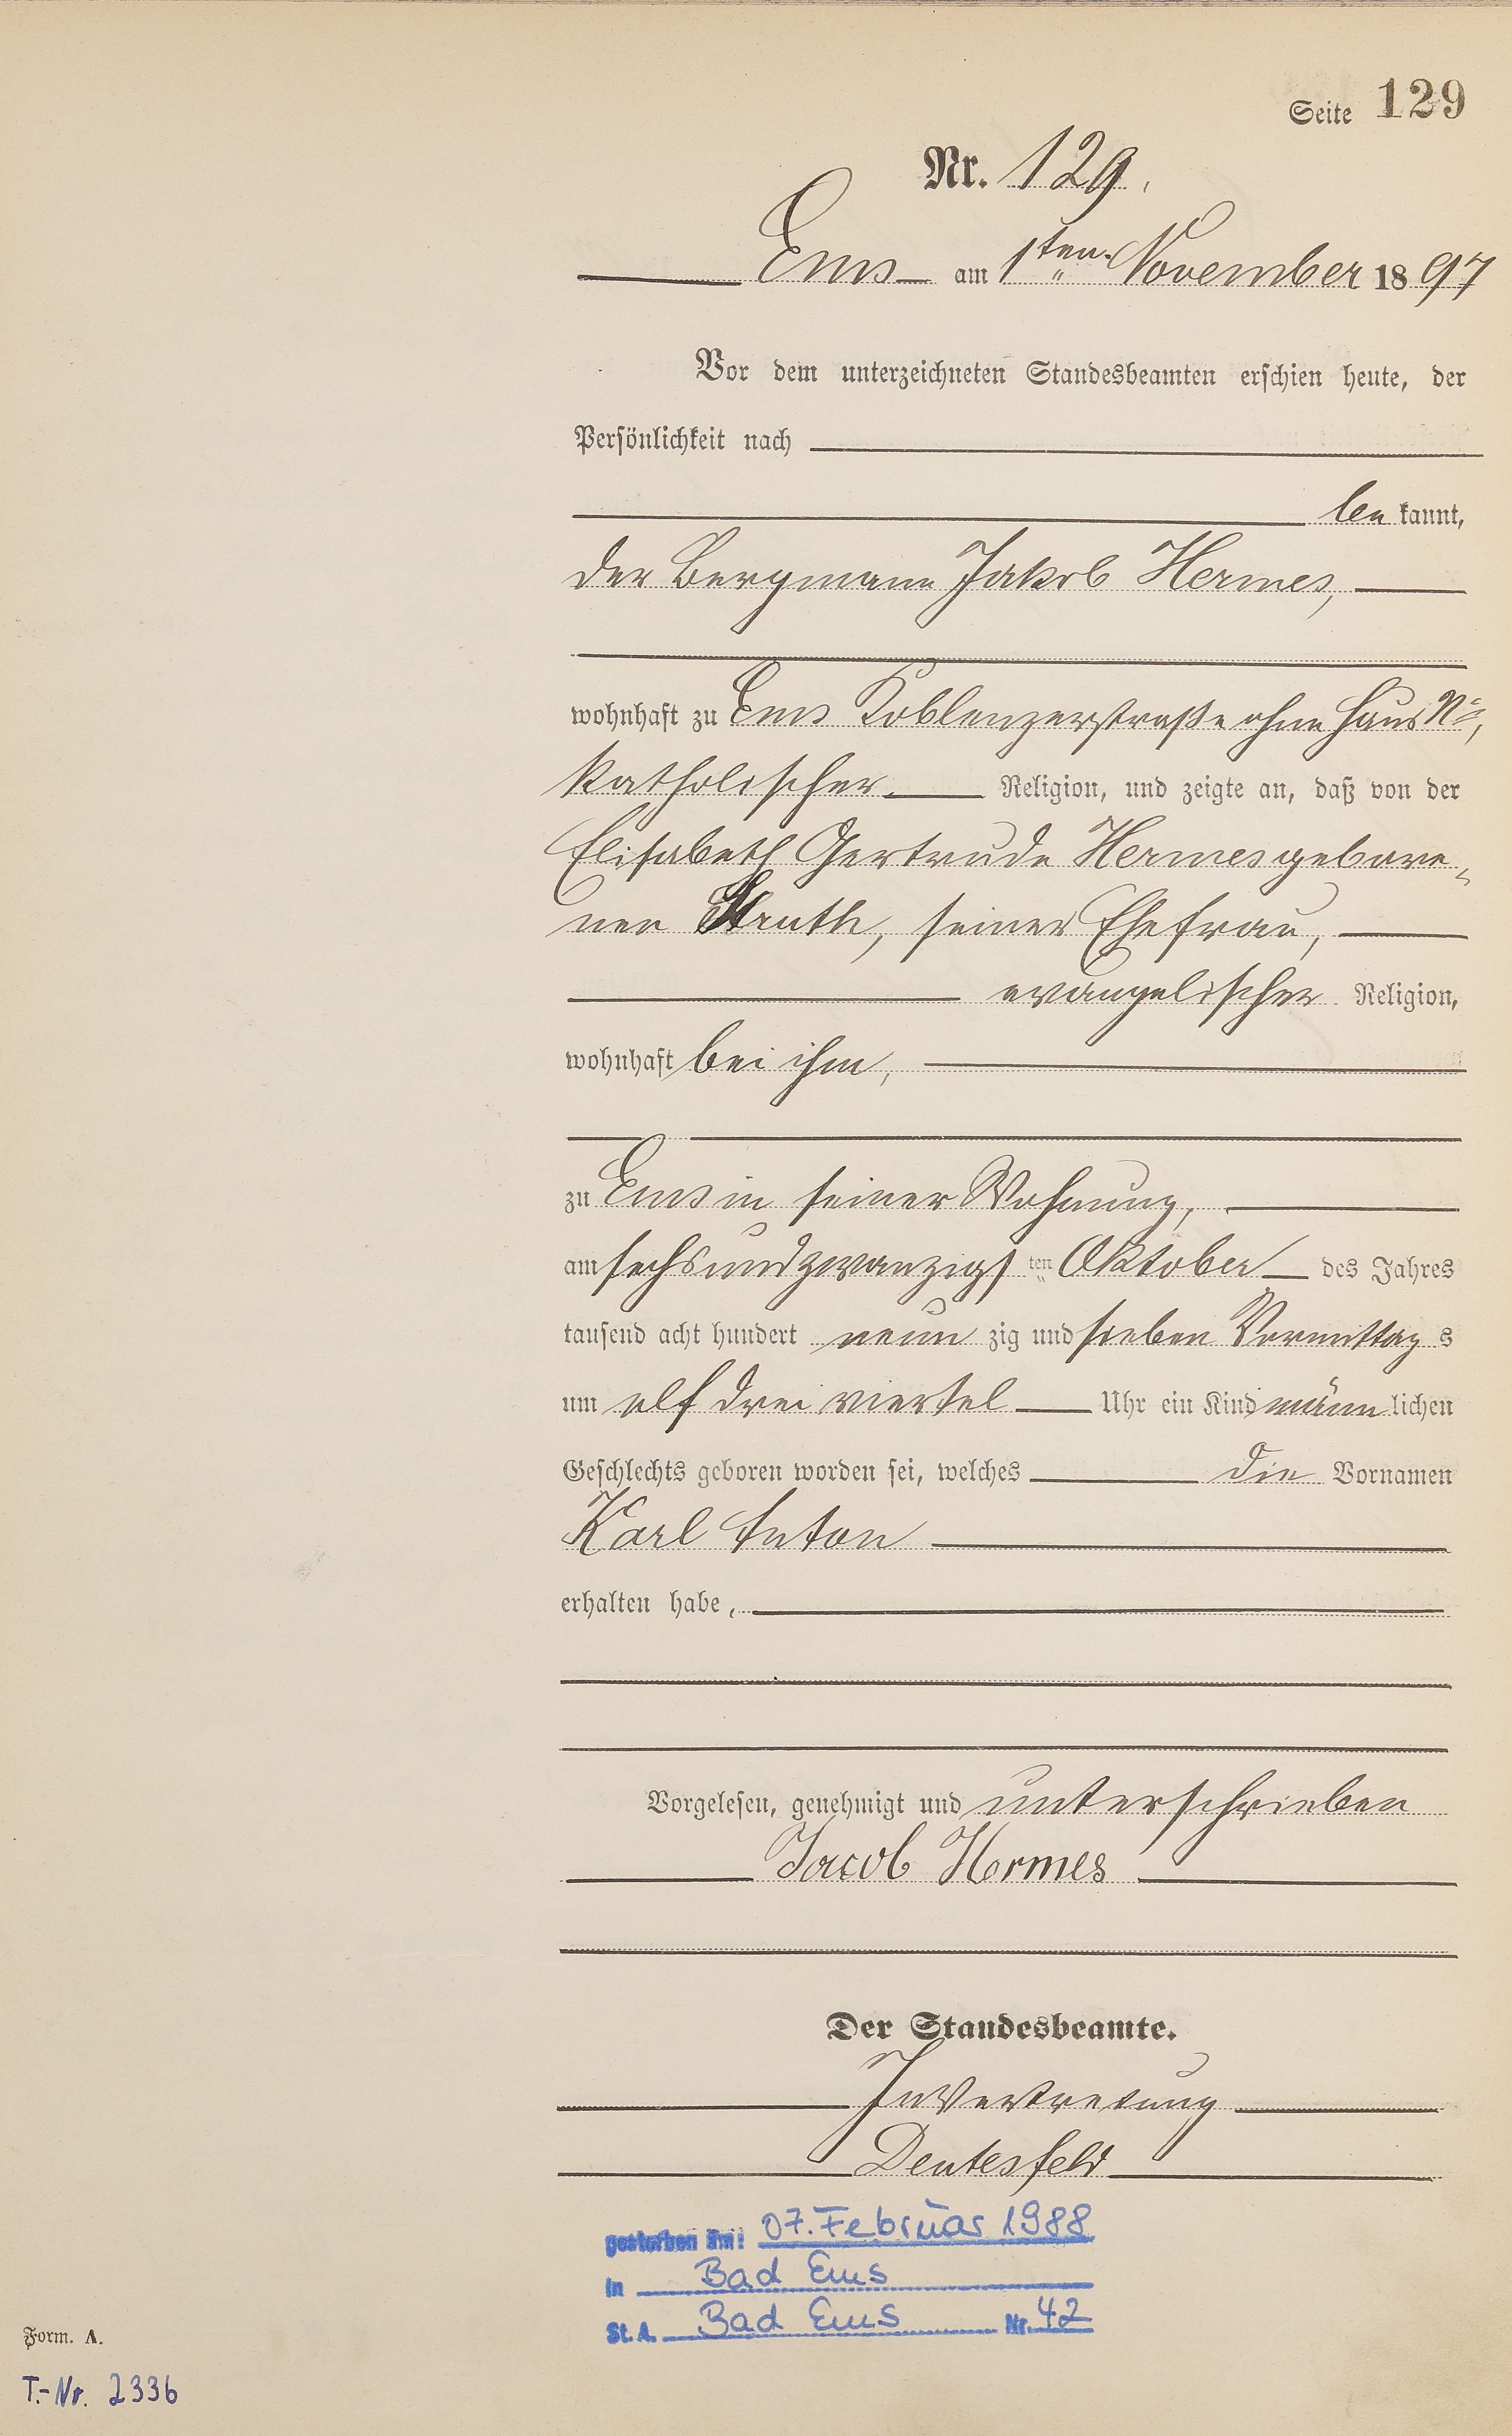 Seite 129
Nr. 129.
Ems am 1ten November 1897
Vor dem unterzeichneten Standesbeamten erschien heute, der
Persönlichkeit nach
be kannt,
der Bergmann Jakob Hermes,
wohnhaft zu Ems Koblenzerstraße ohne Haus No,
katholischer Religion, und zeigte an, daß von der
Elisabeth Gertrude Hermes gebore-
nen Struth, seiner Ehefrau,
evangelischer Religion,
wohnhaft bei ihm,
zu Ems in seiner Wohnung,
am sechsundzwanzigsten Oktober des Jahres
tausend acht hundert neun zig und sieben Vormittags
um elf drei viertel Uhr ein Kind männlichen
Geschlechts geboren worden sei, welches die Vornamen
Karl Anton
erhalten habe,
Vorgelesen, genehmigt und unterschrieben
Jacob Hermes
Der Standesbeamte.
In Vertretung
Deutesfeld
gestorben am: 07. Februar 1988
in Bad Ems
St. A. Bad Ems Nr. 42
Form. A.
T.-Nr. 2336